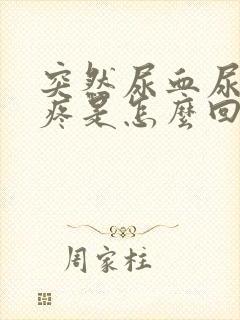 突然尿血尿
疼是怎麼回
周家柱